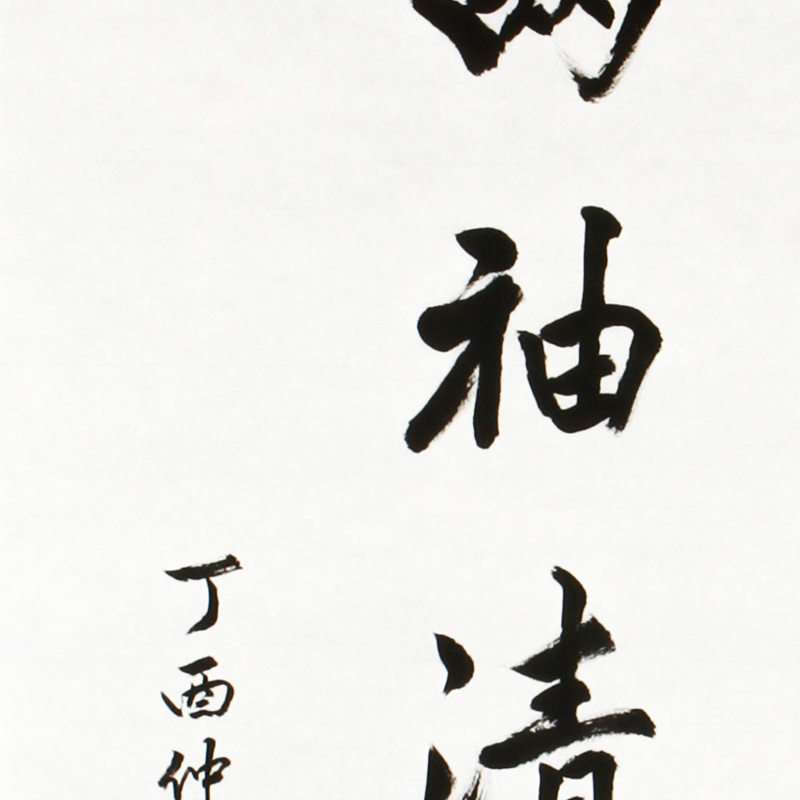 兩袖清
丁酉仲